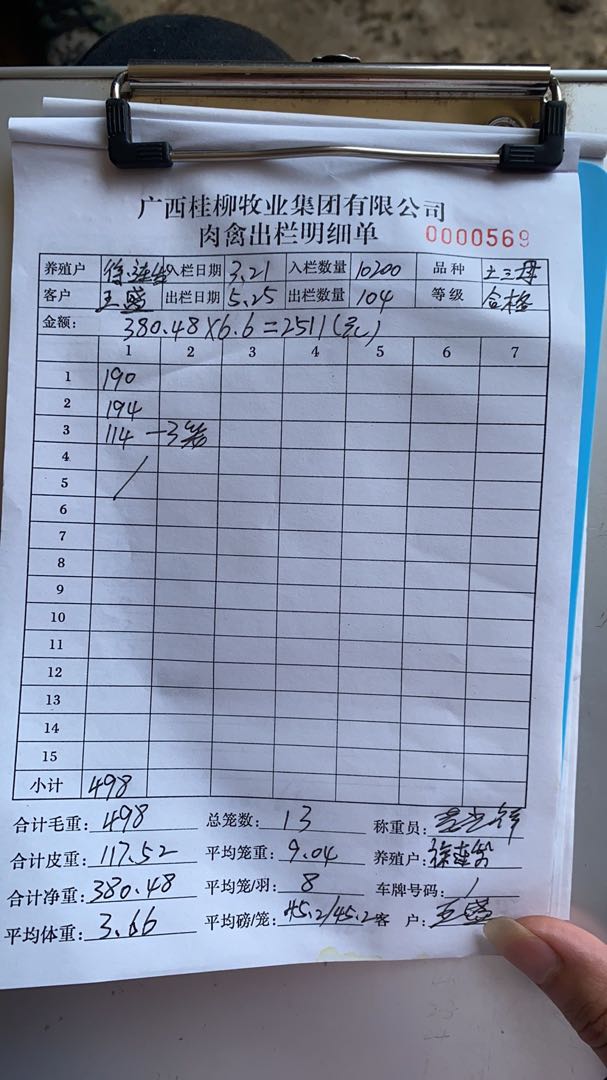 广西桂柳牧业集团有限公司
肉禽出栏明细单 0000569
养殖户 入栏日期 3.21 入栏数量 10200 品种
客户 王盛 出栏日期 5.25 出栏数量 104 等级 合格
金额： 380.48×6.6=2511(元)
1 2 3 4 5 6 7
1 190
2 194
3 114 —3笼
4
5
6
7
8
9
10
11
12
13
14
15
小计 498
合计毛重： 498 总笼数： 13 称重员：
合计皮重： 117.52 平均笼重： 9.04 养殖户：
合计净重： 380.48 平均笼/羽： 8 车牌号码： /
平均体重： 3.66 平均磅/笼： 45.2/45.2 客 户： 王盛